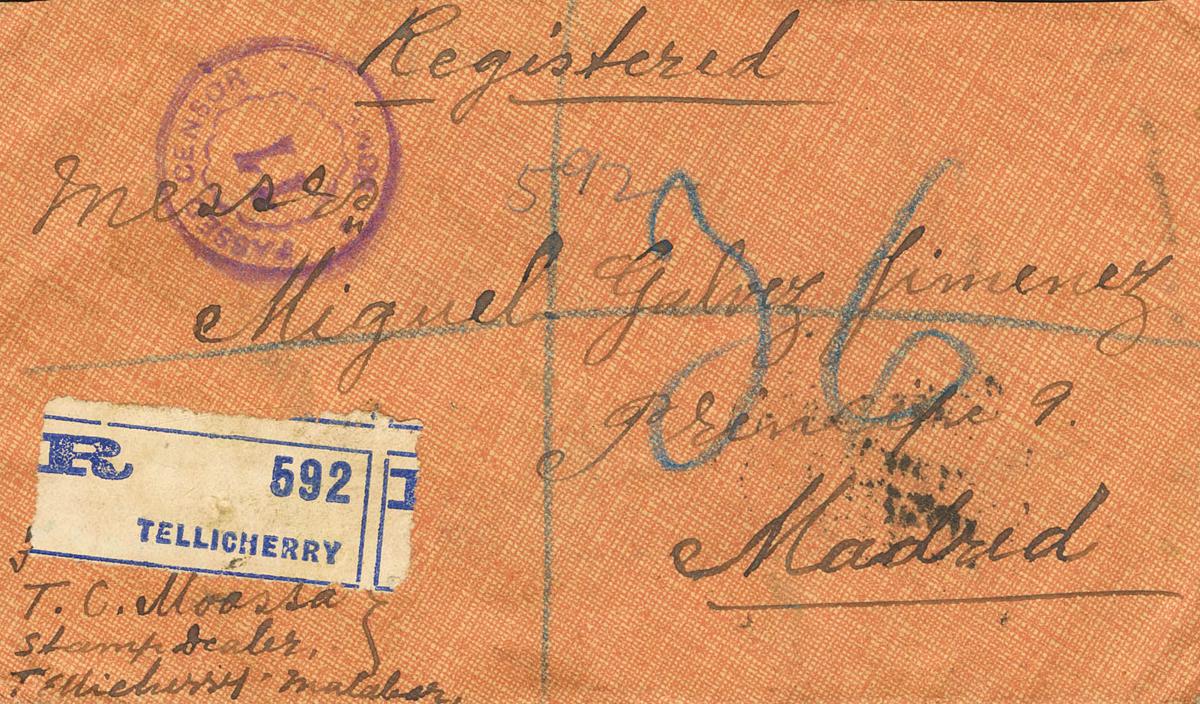 Registered
CENSOR
PASSED
592
Messrs
Miguel Galvez Jimenez
36
9.
Madrid
R 592
TELLICHERRY
T. C. Moossa
Stamp Dealer,
Tellicherry Malabar,